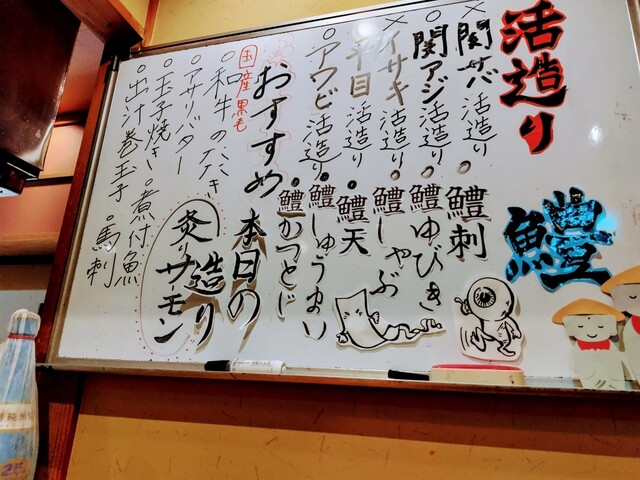 活造り
×関サバ活造り
○関アジ活造り
×イサキ活造り
平目活造り
○アワビ活造り
鱧
・鱧刺
・鱧ゆびき
・鱧しゃぶ
・鱧天
・鱧しゅうまい
・鱧かつとじ
おすすめ
国産黒毛
○和牛のタタキ
○アサリバター
○玉子焼き
○出汁巻玉子
○煮付魚
○馬刺
本日の
造り
炙りサモン